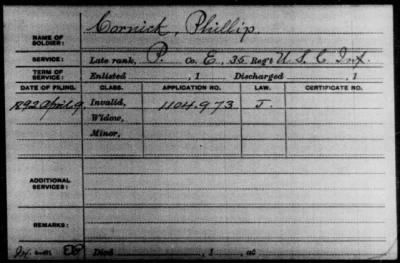 NAME OF SOLDIER: Cornick, Phillip.
SERVICE: Late rank, P. Co. E, 35 Reg't U. S. C Inf.
TERM OF SERVICE: Enlisted , 1 Discharged , 1
DATE OF FILING. CLASS. APPLICATION NO. LAW. CERTIFICATE NO.
1892 April 9 Invalid, 1104.973 J.
Widow,
Minor,
ADDITIONAL SERVICES:
REMARKS:
Died , 1 , at